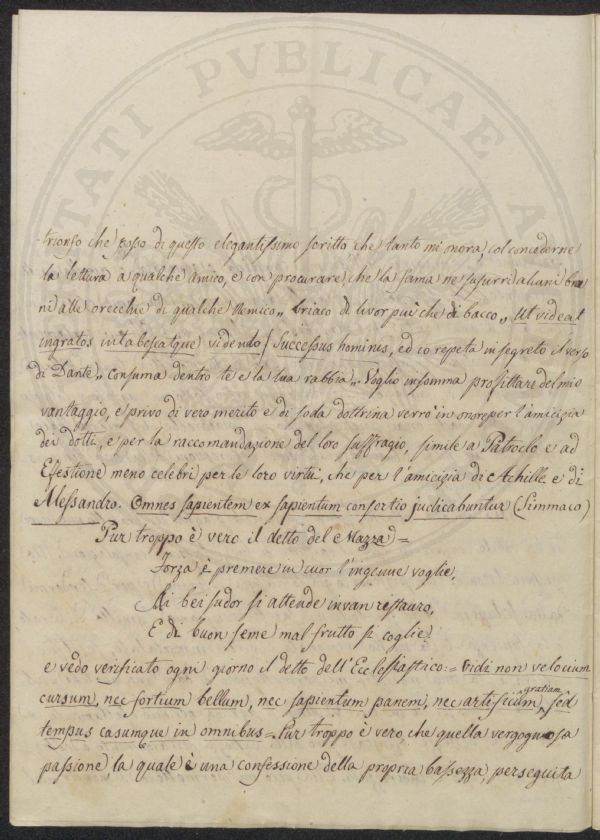 TATI PVBLICAE V
trionfo che posso di questo elegantissimo scritto che tanto mi onora, col concederne
la lettura a qualche amico, e con procurare che la fama ne susurri alcuni bra
ni alle orecchie di qualche Nemico „ briaco di livor più che di bacco „ Ut videat
ingratos intabescatque videndo / Successus homines, ed io repeta in segreto il verso
di Dante „ consuma dentro te e la tua rabbia „. Voglio insomma profittare del mio
vantaggio, e privo di vero merito e di soda dottrina verrò in onore per l'amicizia
dei dotti, e per la raccomandazione del loro suffragio, simile a Patroclo e ad
Efestione meno celebri per le loro virtù, che per l'amicizia di Achille e di
Alessandro. Omnes sapientem ex sapientum consortio judicabuntur (Simmaco)
Pur troppo è vero il detto del Mazza =
Forza è premere in cuor l'ingenue voglie,
Ai bei sudor si attende invan restauro,
E di buon seme mal frutto si coglie:
e vedo verificato ogni giorno il detto dell'Ecclesiastico: = Vidi non velocium
cursum, nec fortium bellum, nec sapientum panem, nec artificum gratiam, sed
tempus casumque in omnibus =. Pur troppo è vero, che quella vergognosa
passione, la quale è una confessione della propria bassezza, perseguita